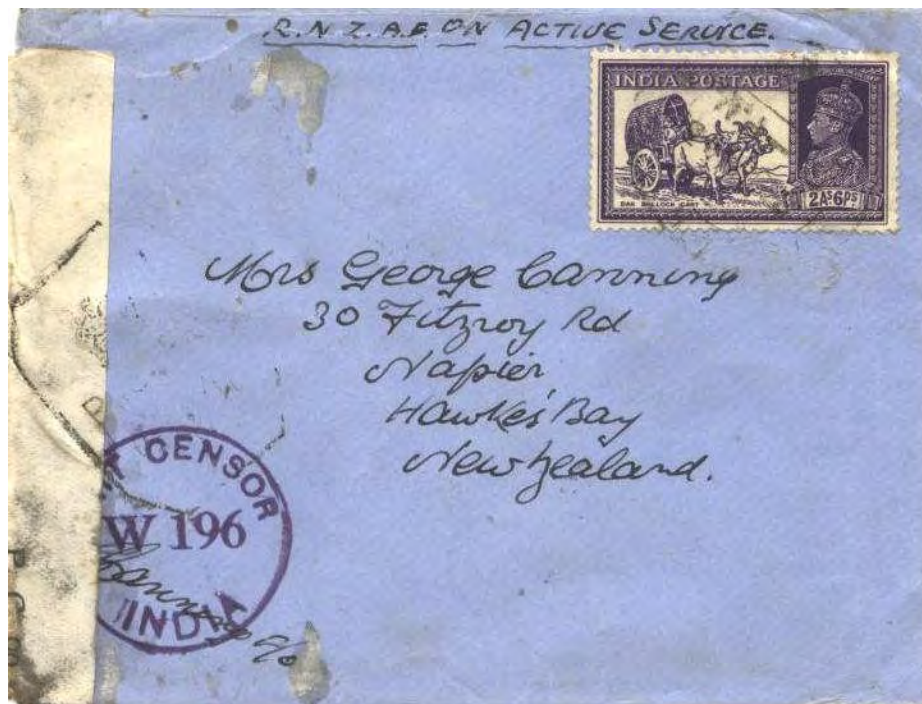 R.N.Z.A.F. ON ACTIVE SERVICE.
INDIA POSTAGE
DAK BULLOCK CART
2AS6PS
Mrs George Canning
30 Fitzroy Rd
Napier
Hawke's Bay
New Zealand.
CENSOR
W 196
Canning
INDIA